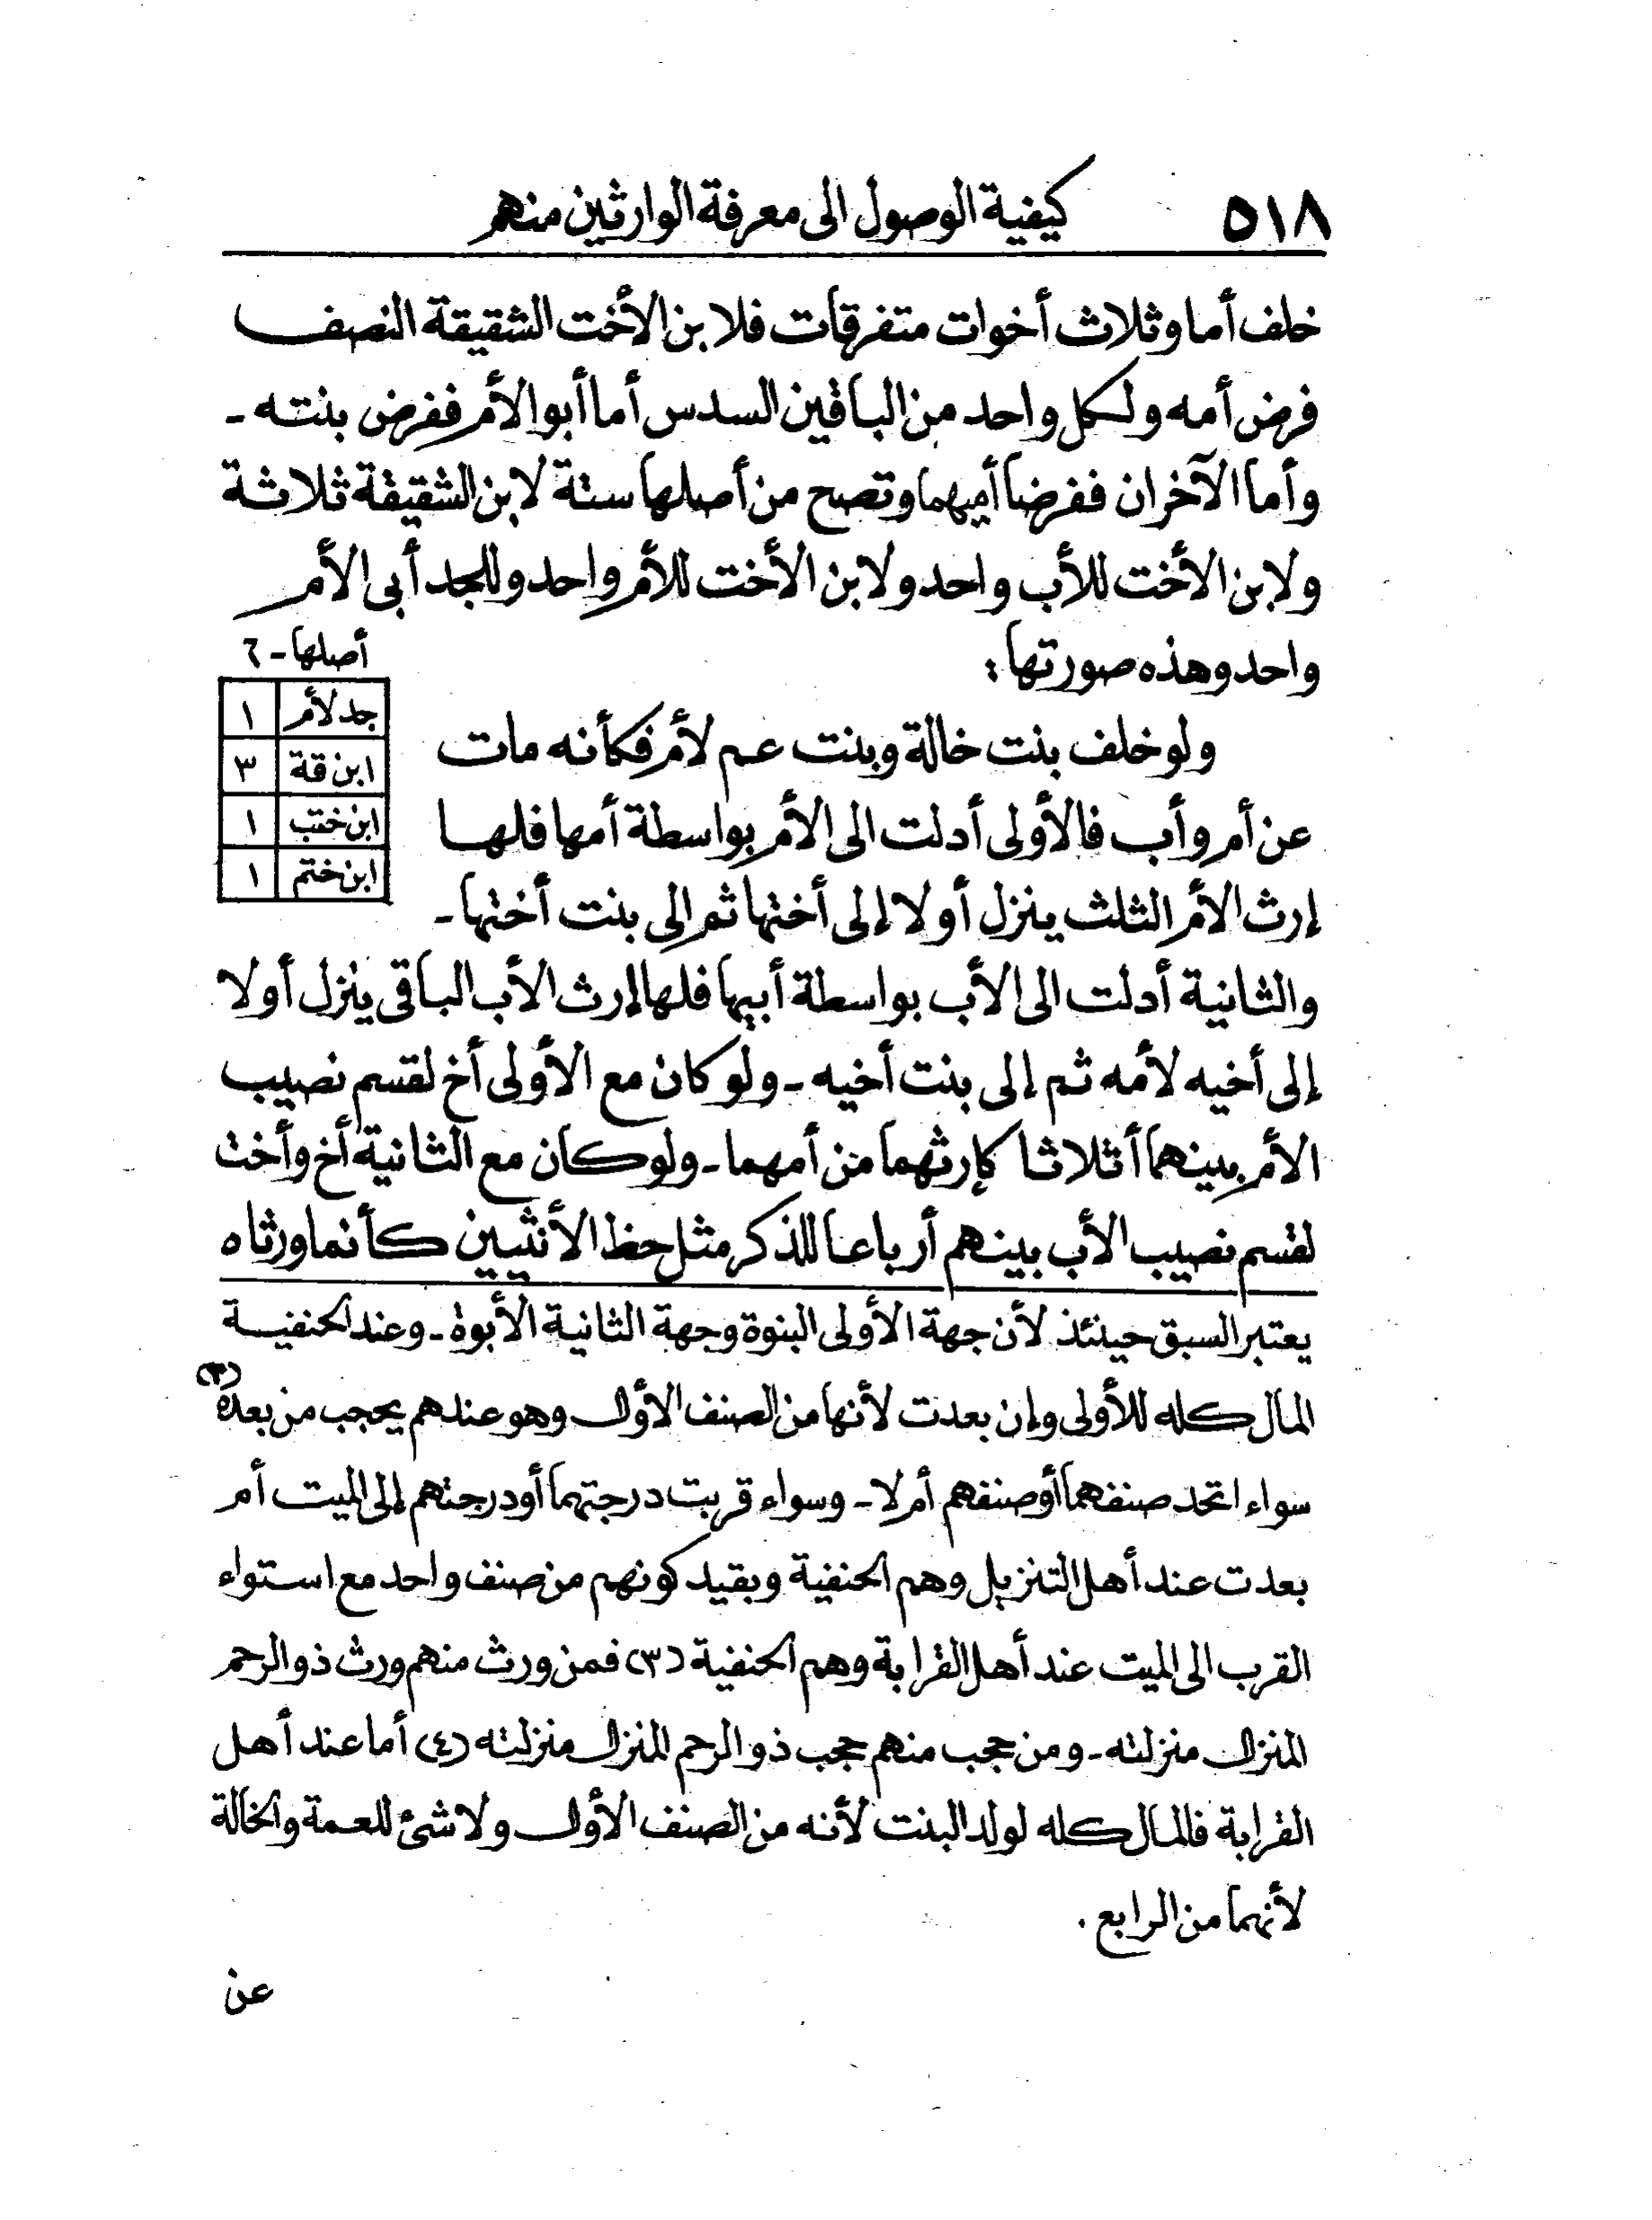 ٥١٨ كيفية الوصول الى معرفة الوارثين منهم
خلف أما وثلاث أخوات متفرقات فلابن الأخت الشقيقة النصف
فرض أمه ولكل واحد من الباقين السدس أما أبو الأم ففرض بنته -
وأما الآخران ففرضا أميهما وتصح من أصلها ستة لابن الشقيقة ثلاثة
ولابن الأخت للأب واحد ولابن الأخت للأم واحد وللجد أبى الأم
واحد وهذه صورتها :
أصلها - ٦
جد لأم ١
ابن قة ٣
ابن ختب ١
ابن ختم ١
ولو خلف بنت خالة وبنت عم لأم فكأنه مات
عن أم وأب فالأولى أدلت الى الأم بواسطة أمها فلها
إرث الأم الثلث ينزل أولا إلى أختها ثم الى بنت أختها -
والثانية أدلت الى الأب بواسطة أبيها فلها إرث الأب الباقى ينزل أولا
إلى أخيه لأمه ثم إلى بنت أخيه - ولو كان مع الأولى أخ لقسم نصيب
الأم بينهما أثلاثا كإرثهما من أمهما - ولو كان مع الثانية أخ وأخت
لقسم نصيب الأب بينهم أرباعا للذكر مثل حظ الأنثيين كأنما ورثاه
يعتبر السبق حينئذ لأن جهة الأولى البنوة وجهة الثانية الأبوة - وعند الحنفية
المال كله للأولى وإن بعدت لأنها من الصنف الأول وهو عندهم يحجب من بعده (٢)
سواء اتحد صنفهما أو صنفهم أم لا - وسواء قربت درجتهما أو درجتهم إلى الميت أم
بعدت عند أهل التنزيل وهم الحنفية وبقيد كونهم من صنف واحد مع استواء
القرب الى الميت عند أهل القرابة وهم الحنفية (٣) فمن ورث منهم ورث ذو الرحم
المنزل منزلته - ومن حجب منهم حجب ذو الرحم المنزل منزلته (٤) أما عند أهل
القرابة فالمال كله لولد البنت لأنه من الصنف الأول ولا شئ للعمة والخالة
لأنهما من الرابع .
عن